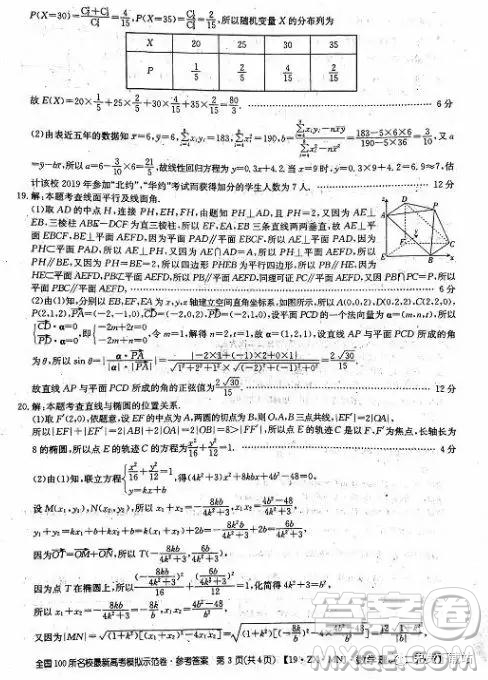 P(X=30)=(C¹₂+C¹₄)/C²₆=4/15, P(X=35)=C¹₂/C²₆=2/15,所以随机变量 X 的分布列为
X 20 25 30 35
P 1/5 2/5 4/15 2/15
故 E(X)=20×1/5+25×2/5+30×4/15+35×2/15=80/3. 6 分
(2)由表近五年的数据知 x̄=6, ȳ=6, =183, =190, b= =(183-5×6×6)/(190-5×36)=3/10, 又 a
=ȳ-bx̄,所以 a=6-3/10×6=21/5,故线性回归方程为 y=0.3x+4.2,当 x=9 时, y=0.3×9+4.2=6.9≈7,估
计该校 2019 年参加“北约”,“华约”考试而获得加分的学生人数为 7 人. 12 分
19.解:本题考查线面平行及线面角.
(1)取 AD 的中点 H,连接 PH,EH,FH,由题知 PH⊥AD,且 PH=2,又因为 AE⊥
EB,三棱柱 ABE-DCF 为直三棱柱,所以 EF,EA,EB 三条直线两两垂直,故 AE⊥平
面 EBCF,BE⊥平面 AEFD,因为平面 PAD⊥平面 EBCF,所以 AE∥平面 PAD,因为
PH⊂平面 PAD,所以 AE⊥PH,又因为 AE∩AD=A,所以 PH⊥平面 AEFD,所以
PH∥BE,又因为 PH=BE=2,所以四边形 PHEB 为平行四边形,所以 PB∥HE,因为
HE⊂平面 AEFD,PB⊄平面 AEFD,所以 PB∥平面 AEFD,同理可证 PC∥平面 AEFD,又因 PB∩PC=P,所以
平面 PBC∥平面 AEFD. 6 分
(2)由(1)知,分别以 EB,EF,EA 为 x,y,z 轴建立空间直角坐标系,如图所示,所以 A(0,0,2),D(0,2,2),C(2,2,0),
P(2,1,2),PA=(-2,-1,0),CD=(-2,0,2),PD=(-2,1,0),设平面 PCD 的一个法向量为 α=(m,n,t),所以
{CD·α=0 {-2m+2t=0
{PD·α=0, 即{-2m+n=0, 令 m=1,解得 n=2,t=1,故 α=(1,2,1),设直线 AP 与平面 PCD 所成的角
为 θ,所以 sin θ=|α·PA|/(|α|·|PA|)=|-2×1+(-1)×2+0×1|/(√(1²+2²+1²)×√((-2)²+(-1)²+0²))=2√30/15.
故直线 AP 与平面 PCD 所成的角的正弦值为2√30/15. 12 分
20.解:本题考查直线与椭圆的位置关系.
(1)取 F′(2,0),依题意,设 EF 的中点为 A,两圆的切点为 B,则 O,A,B 三点共线,|EF′|=2|OA|,
所以|EF|+|EF′|=2|AB|+2|OA|=2|OB|=8>|FF′|,所以点 E 的轨迹 C 是以 F,F′为焦点,长轴长为
8 的椭圆,所以点 E 的轨迹 C 的方程为x²/16+y²/12=1. 4 分
(2)由(1)知,联立方程{x²/16+y²/12=1 y=kx+b, 得(4k²+3)x²+8kbx+4b²-48=0.
设 M(x₁,y₁),N(x₂,y₂),所以 x₁+x₂=-8kb/(4k²+3), x₁x₂=(4b²-48)/(4k²+3),
y₁+y₂=kx₁+b+kx₂+b=k(x₁+x₂)+2b=-8k²b/(4k²+3)+2b=6b/(4k²+3),
因为OT=OM+ON,所以 T(-8kb/(4k²+3),6b/(4k²+3)).
因为点 T 在椭圆上,所以(-8kb/(4k²+3))²/16+(6b/(4k²+3))²/12=1,化简得 4k²+3=b²,
所以 x₁+x₂=-8kb/(4k²+3)=-8k/b, x₁x₂=(4b²-48)/b²,
又因为|MN|=√((1+k²)[(x₁+x₂)²-4x₁x₂])
全国 100 所名校最新高考模拟示范卷·参考答案 第 3 页(共 4 页)【19·ZX·MNJ·数学